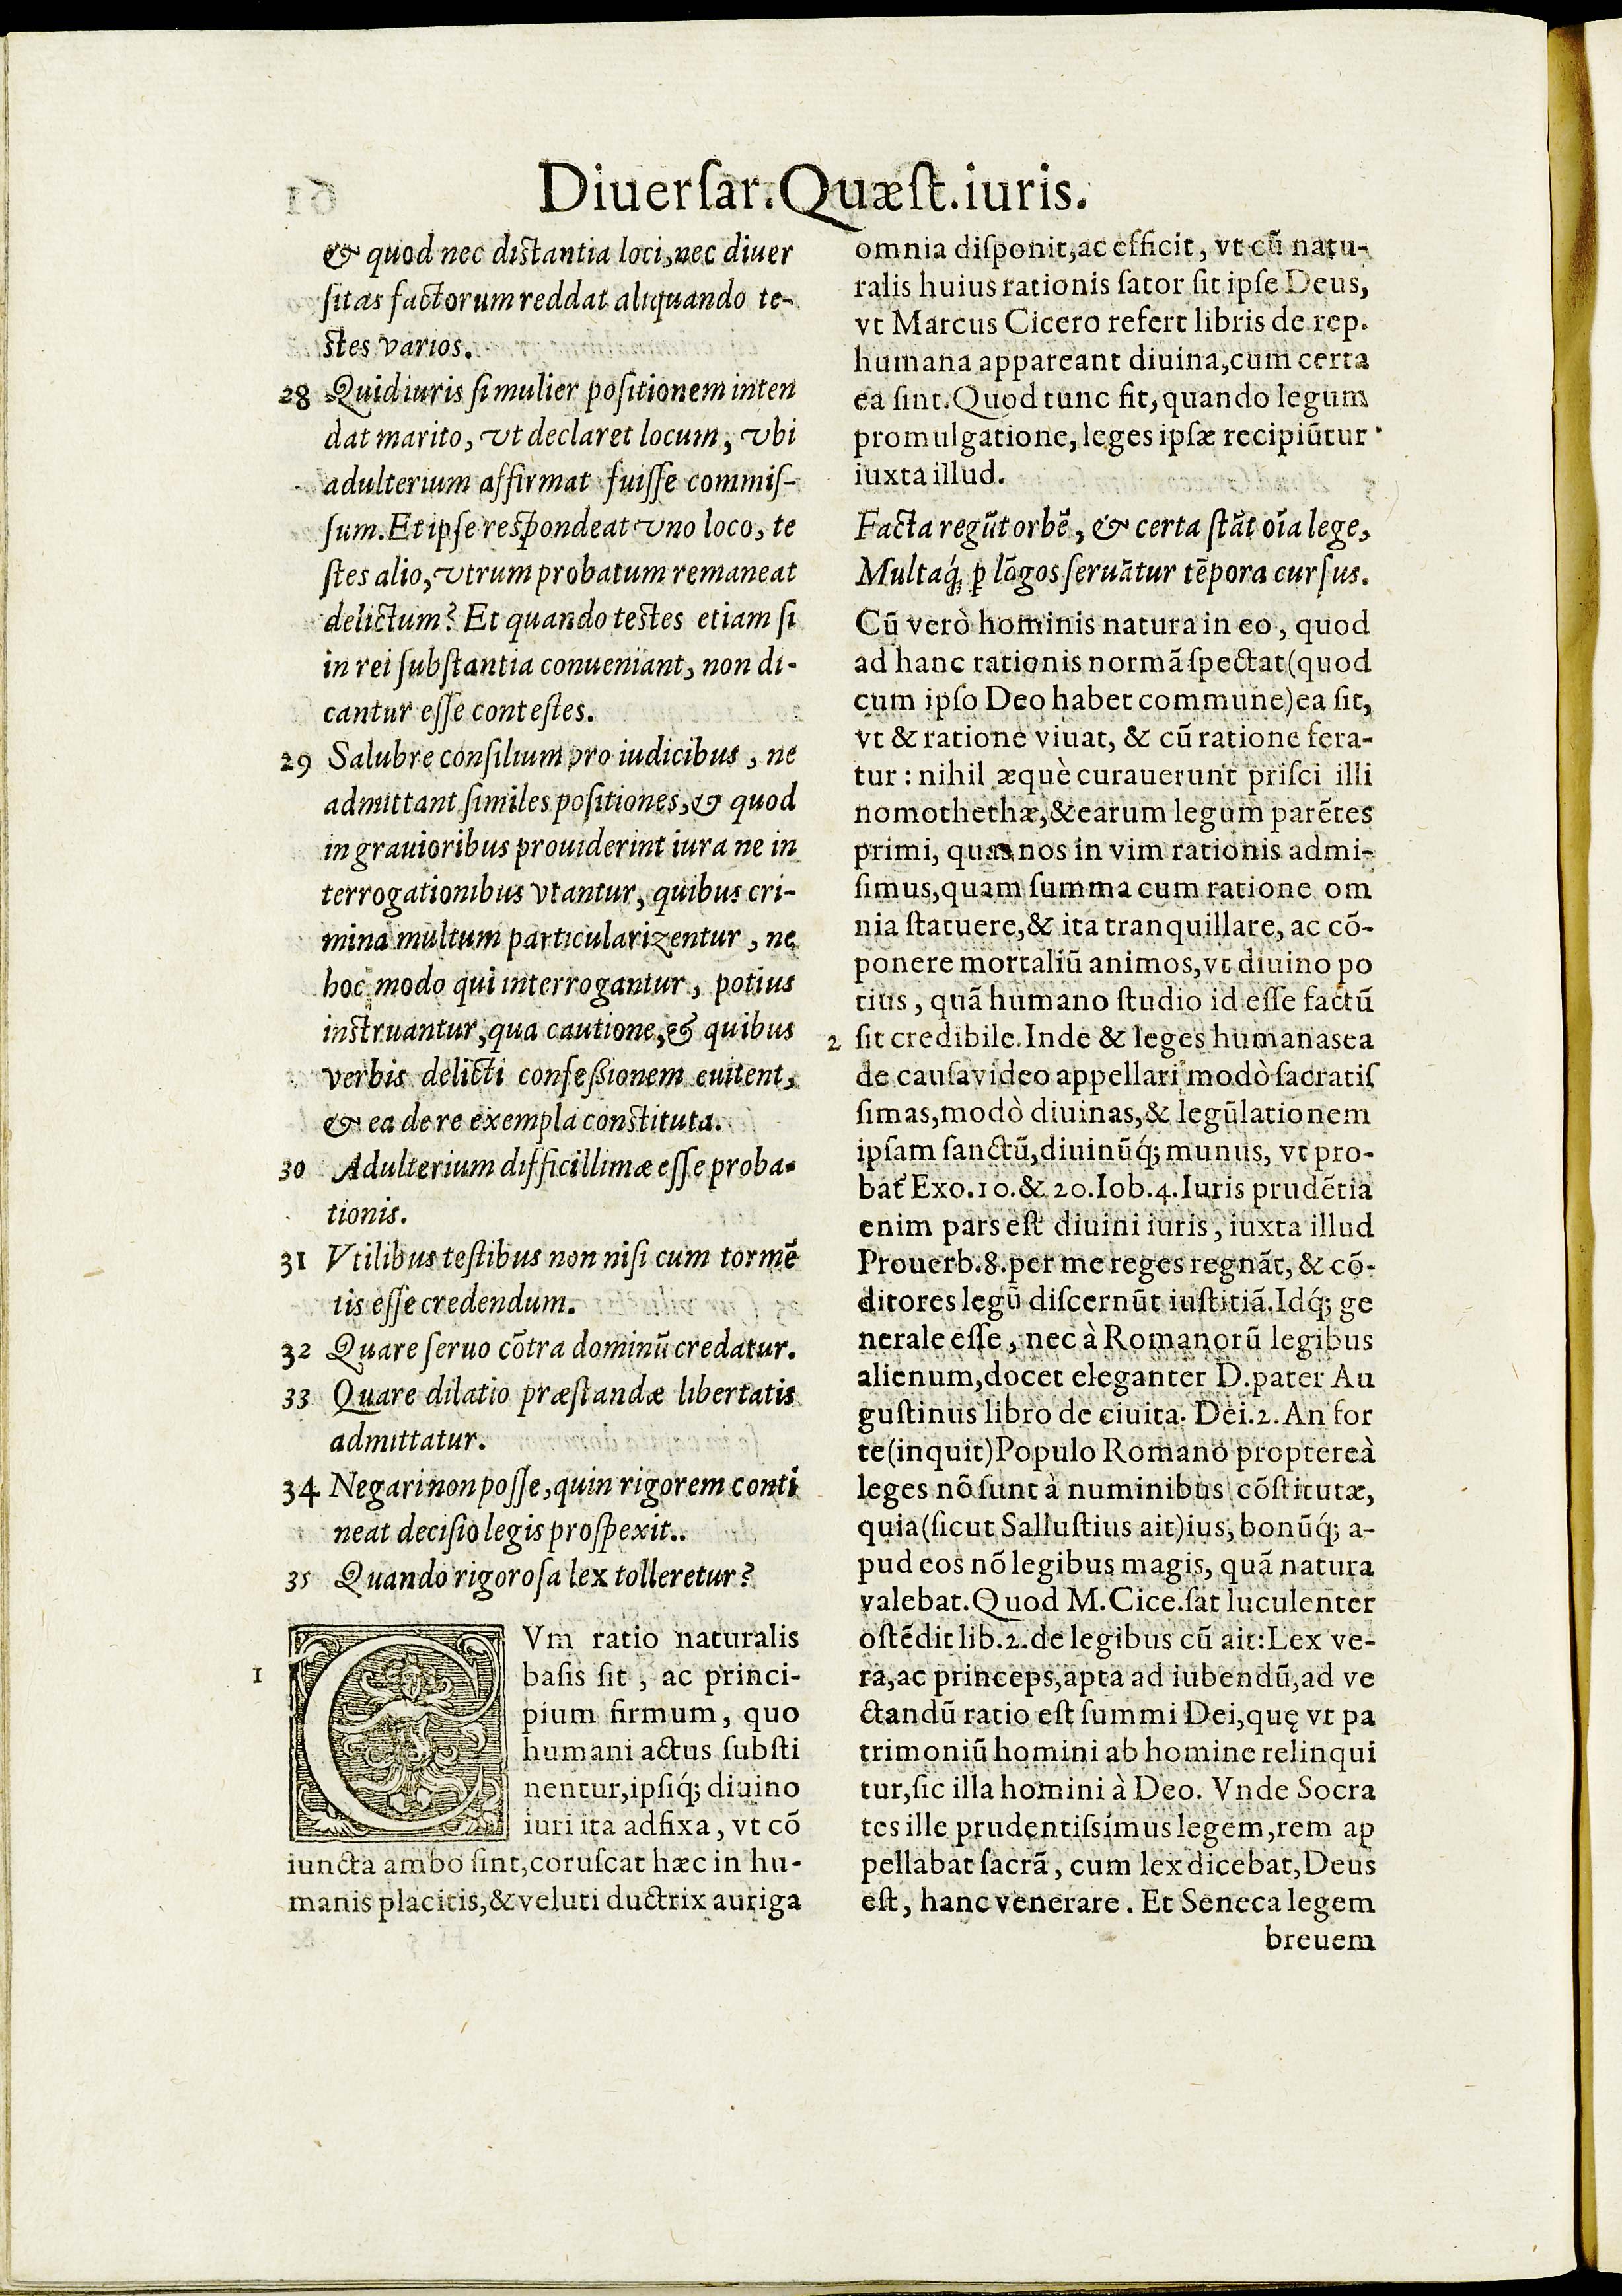 Diuerſar.Quæſt.iuris.
& quod nec diſtantia loci, nec diuer
ſitas factorum reddat aliquando te-
ſtes varios.
28 Quid iuris ſi mulier poſitionem inten
dat marito, vt declaret locum, vbi
adulterium affirmat fuiſſe commiſ-
ſum. Et ipſe reſpondeat vno loco, te
ſtes alio, vtrum probatum remaneat
delictum? Et quando teſtes etiam ſi
in rei ſubſtantia conueniant, non di-
cantur eſſe conteſtes.
29 Salubre conſilium pro iudicibus, ne
admittant ſimiles poſitiones, & quod
in grauioribus prouiderint iura ne in
terrogationibus vtantur, quibus cri-
mina multum particularizentur, ne
hoc modo qui interrogantur, potius
inſtruantur, qua cautione, & quibus
verbis delicti confeßionem euitent,
& ea de re exempla conſtituta.
30 Adulterium difficillimæ eſſe proba-
tionis.
31 Vtilibus teſtibus non niſi cum tormẽ
tis eſſe credendum.
32 Quare ſeruo cõtra dominũ credatur.
33 Quare dilatio præſtandæ libertatis
admittatur.
34 Negari non poſſe, quin rigorem conti
neat deciſio legis proſpexit..
35 Quando rigoroſa lex tolleretur?
1
CVm ratio naturalis
baſis ſit, ac princi-
pium firmum, quo
humani actus ſubſti
nentur, ipſiq́; diuino
iuri ita adfixa, vt cõ
iuncta ambo ſint, coruſcat hæc in hu-
manis placitis, & veluti ductrix auriga
omnia diſponit, ac efficit, vt cũ natu-
ralis huius rationis ſator ſit ipſe Deus,
vt Marcus Cicero refert libris de rep.
humana appareant diuina, cum certa
ea ſint. Quod tunc fit, quando legum
promulgatione, leges ipſæ recipiũtur
iuxta illud.
Facta regũt orbẽ, & certa ſtãt oĩa lege,
Multaq́; ꝑ lõgos ſeruãtur tẽpora curſus.
Cũ verò hominis natura in eo, quod
ad hanc rationis normã ſpectat (quod
cum ipſo Deo habet commune) ea ſit,
vt & ratione viuat, & cũ ratione fera-
tur: nihil æquè curauerunt priſci illi
nomothethæ, & earum legum parẽtes
primi, quas nos in vim rationis admi-
ſimus, quam ſumma cum ratione om
nia ſtatuere, & ita tranquillare, ac cõ-
ponere mortaliũ animos, vt diuino po
tius, quã humano ſtudio id eſſe factũ
2 ſit credibile. Inde & leges humanas ea
de cauſa video appellari modò ſacratiſ
ſimas, modò diuinas, & legũ lationem
ipſam ſanctũ, diuinũq́; munus, vt pro-
bat́ Exo.10.& 20.Iob.4. Iuris prudẽtia
enim pars eſt diuini iuris, iuxta illud
Prouerb.8. per me reges regnãt, & cõ-
ditores legũ diſcernũt iuſtitiã. Idq́; ge
nerale eſſe, nec à Romanorũ legibus
alienum, docet eleganter D. pater Au
guſtinus libro de ciuita. Dei.2. An for
te (inquit) Populo Romano proptereà
leges nõ ſunt à numinibus cõſtitutæ,
quia (ſicut Salluſtius ait) ius, bonũq́; a-
pud eos nõ legibus magis, quã natura
valebat. Quod M. Cice. ſat luculenter
oſtẽdit lib.2. de legibus cũ ait: Lex ve-
ra, ac princeps, apta ad iubendũ, ad ve
ctandũ ratio eſt ſummi Dei, quę vt pa
trimoniũ homini ab homine relinqui
tur, ſic illa homini à Deo. Vnde Socra
tes ille prudentiſsimus legem, rem ap
pellabat ſacrã, cum lex dicebat, Deus
eſt, hanc venerare. Et Seneca legem
breuem